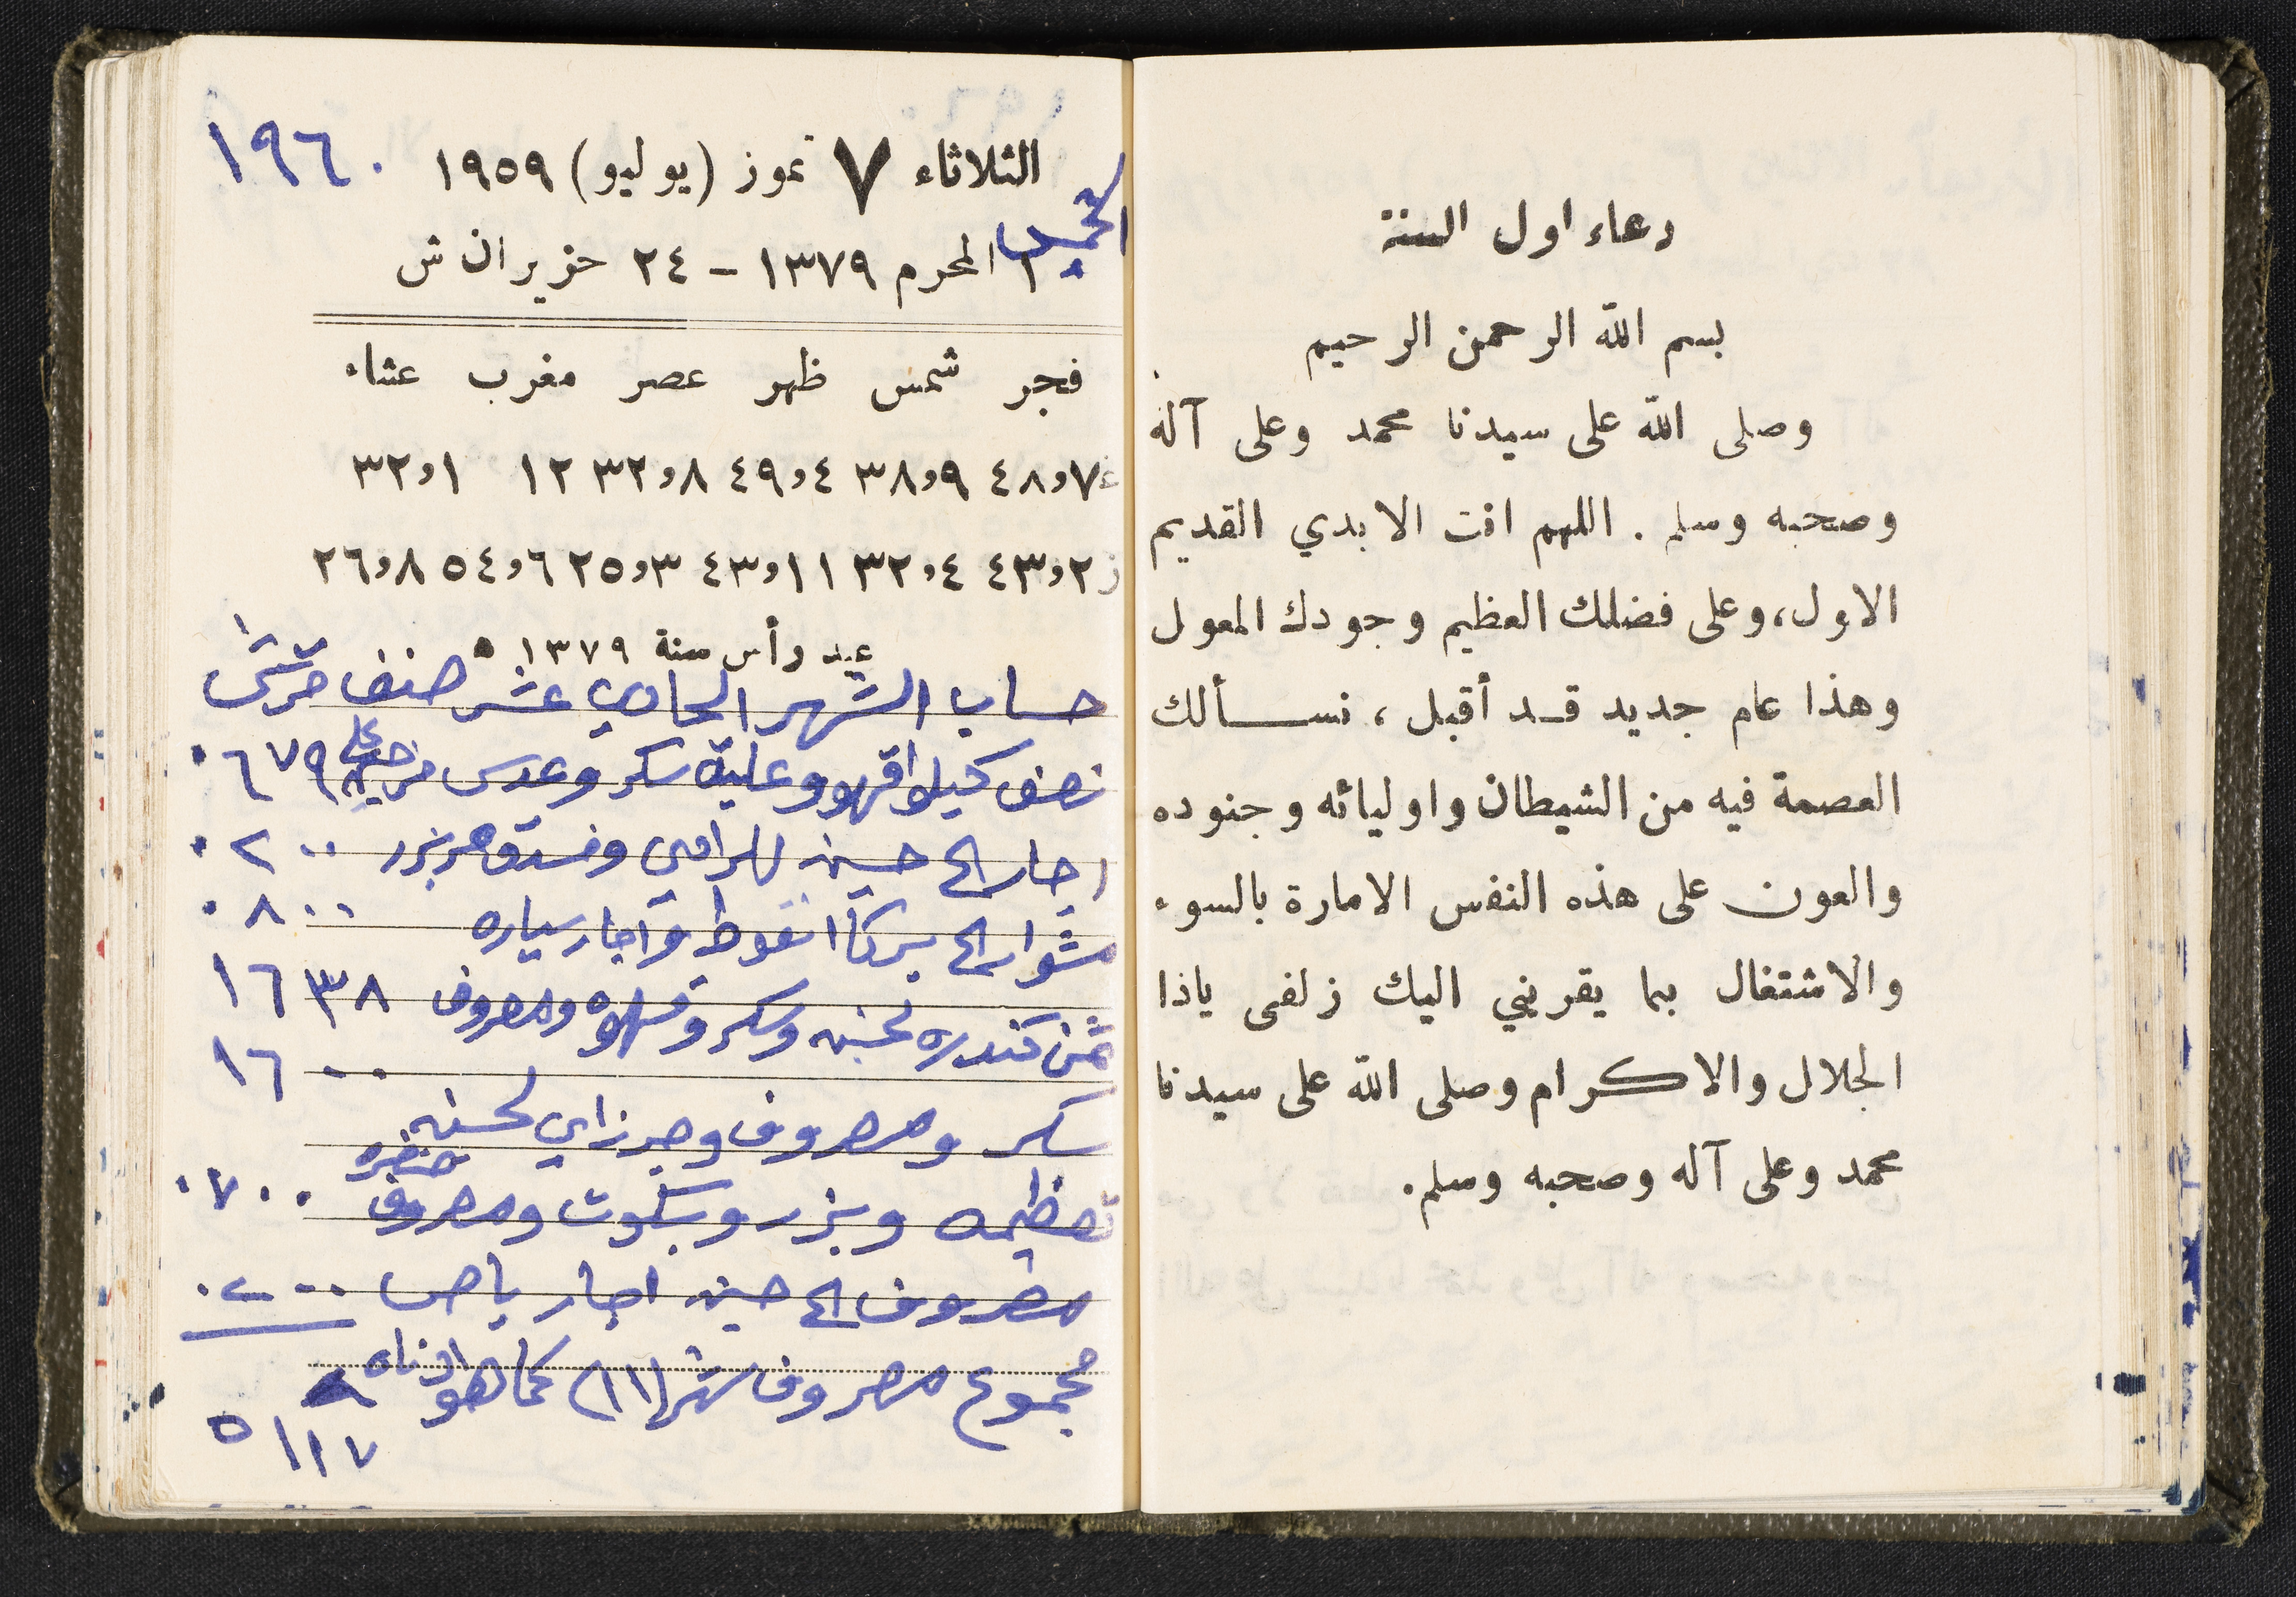 دعاء اول السنة
بسم الله الرحمن الرحيم
وصلى الله على سيدنا محمد وعلى آله
وصحبه وسلم . اللهم انت الابدي القديم
الاول، وعلى فضلك العظيم وجودك المعول
وهذا عام جديد قد أقبل ، نسألك
العصمة فيه من الشيطان واوليائه وجنوده
والعون على هذه النفس الامارة بالسوء
والاشتغال بما يقربني اليك زلفى ياذا
الجلال والاكرام وصلى الله على سيدنا
محمد وعلى آله وصحبه وسلم.
الثلاثاء ٧ تموز (يوليو) ١٩٥٩ ١٩٦٠
الخميس
١ المحرم ١٣٧٩ – ٢٤ حزيران ش
فجر شمس ظهر عصر مغرب عشاء
غ ٧و٤٨ ٩و٣٨ ٤و٤٩ ٨و٣٢ ١٢ ١و٣٢
ز ٢و٤٣ ٤و٣٢ ١١و٤٣ ٣و٢٥ ٦و٥٤ ٨و٢٦
عيد رأس سنة ١٣٧٩ ه
حساب الشهر الحادي عشر صنف
نصف كيلوا قهوه وعلبة سكر وعدس ٠٦٧٩
اجار الح حسين للرامي وفستق وبزر ٠٢٠٠
مشوار الح بركا نقوط واجار سياره ٠٨٠٠
ثمن كندره لحسنه وسكر وقهوه ومصروف ١٦٣٨
١٦٠٠
سكر ومصروف وجرزاي لحسنه
وبزر وبسكوت ومصروف ٠٧٠٠
مصروف الح حسين اجار باص ٠٢٠٠
مجموع مصروف شهر (١١) كما هو ادناه
٥١١٧